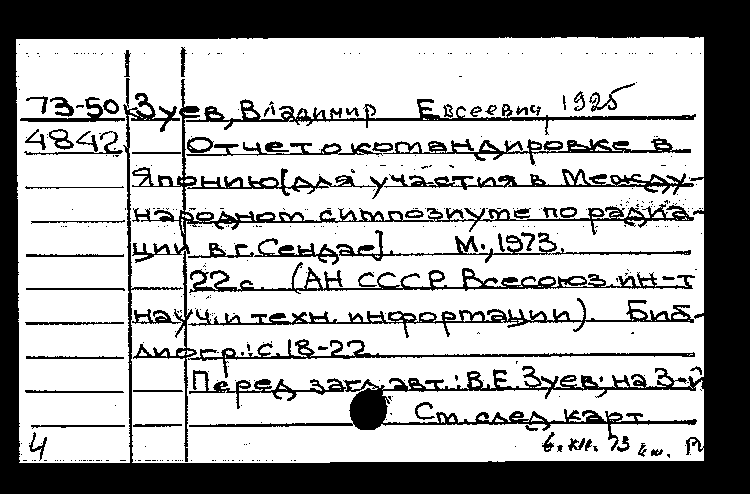 73-50 Зуев, Владимир Евсеевич, 1925
4842 Отчет о командировке в
Японию [для участия в Между-
народном симпозиуме по радиа-
ции в г. Сендае]. М., 1973.
22 с. (АН СССР. Всесоюз. ин-т
науч. и техн. информации). Биб-
лиогр.: с. 18-22
Перед загл. авт.: В.Е. Зуев; на 3-й
См. след. карт.
4 6. XII. 73